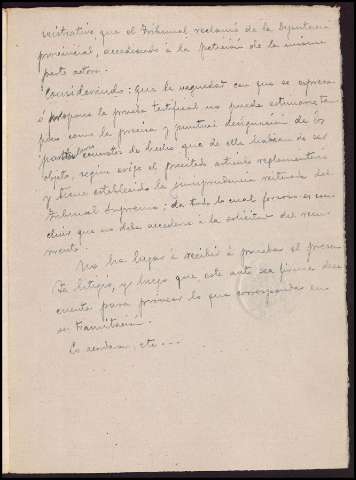 nistrativo que el Tribunal reclamó de la Diputación
provincial, accediendo á la petición de la misma
parte actora.
Considerando: que la vaguedad con que se expresa
ó propone la prueba testifical no puede estimarse tam-
poco como la precisa y puntual designación de los
puntos concretos de hecho que de ella habían de ser
objeto, segun exige el precitado artículo reglamentario
y tiene establecido la jurisprudencia reiterada del
Tribunal Supremo; de todo lo cual forzoso es con-
cluir que no debe accederse á la solicitud del recu-
rrente.
No ha lugar á recibir á prueba el presen-
te litigio, y luego que este auto sea firme dese
cuenta para proveer lo que corresponda en
su tramitación.
Lo acordaron, etc...